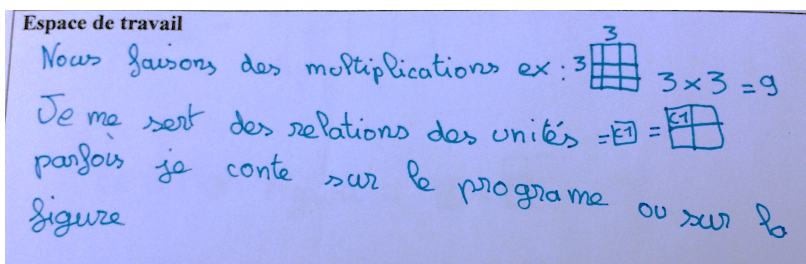 Espace de travail
Nous faisons des moltiplications ex : 3 3 3 × 3 = 9
Je me sert des relations des unités = C1 = C1
parfois je conte sur le programe ou sur la
figure